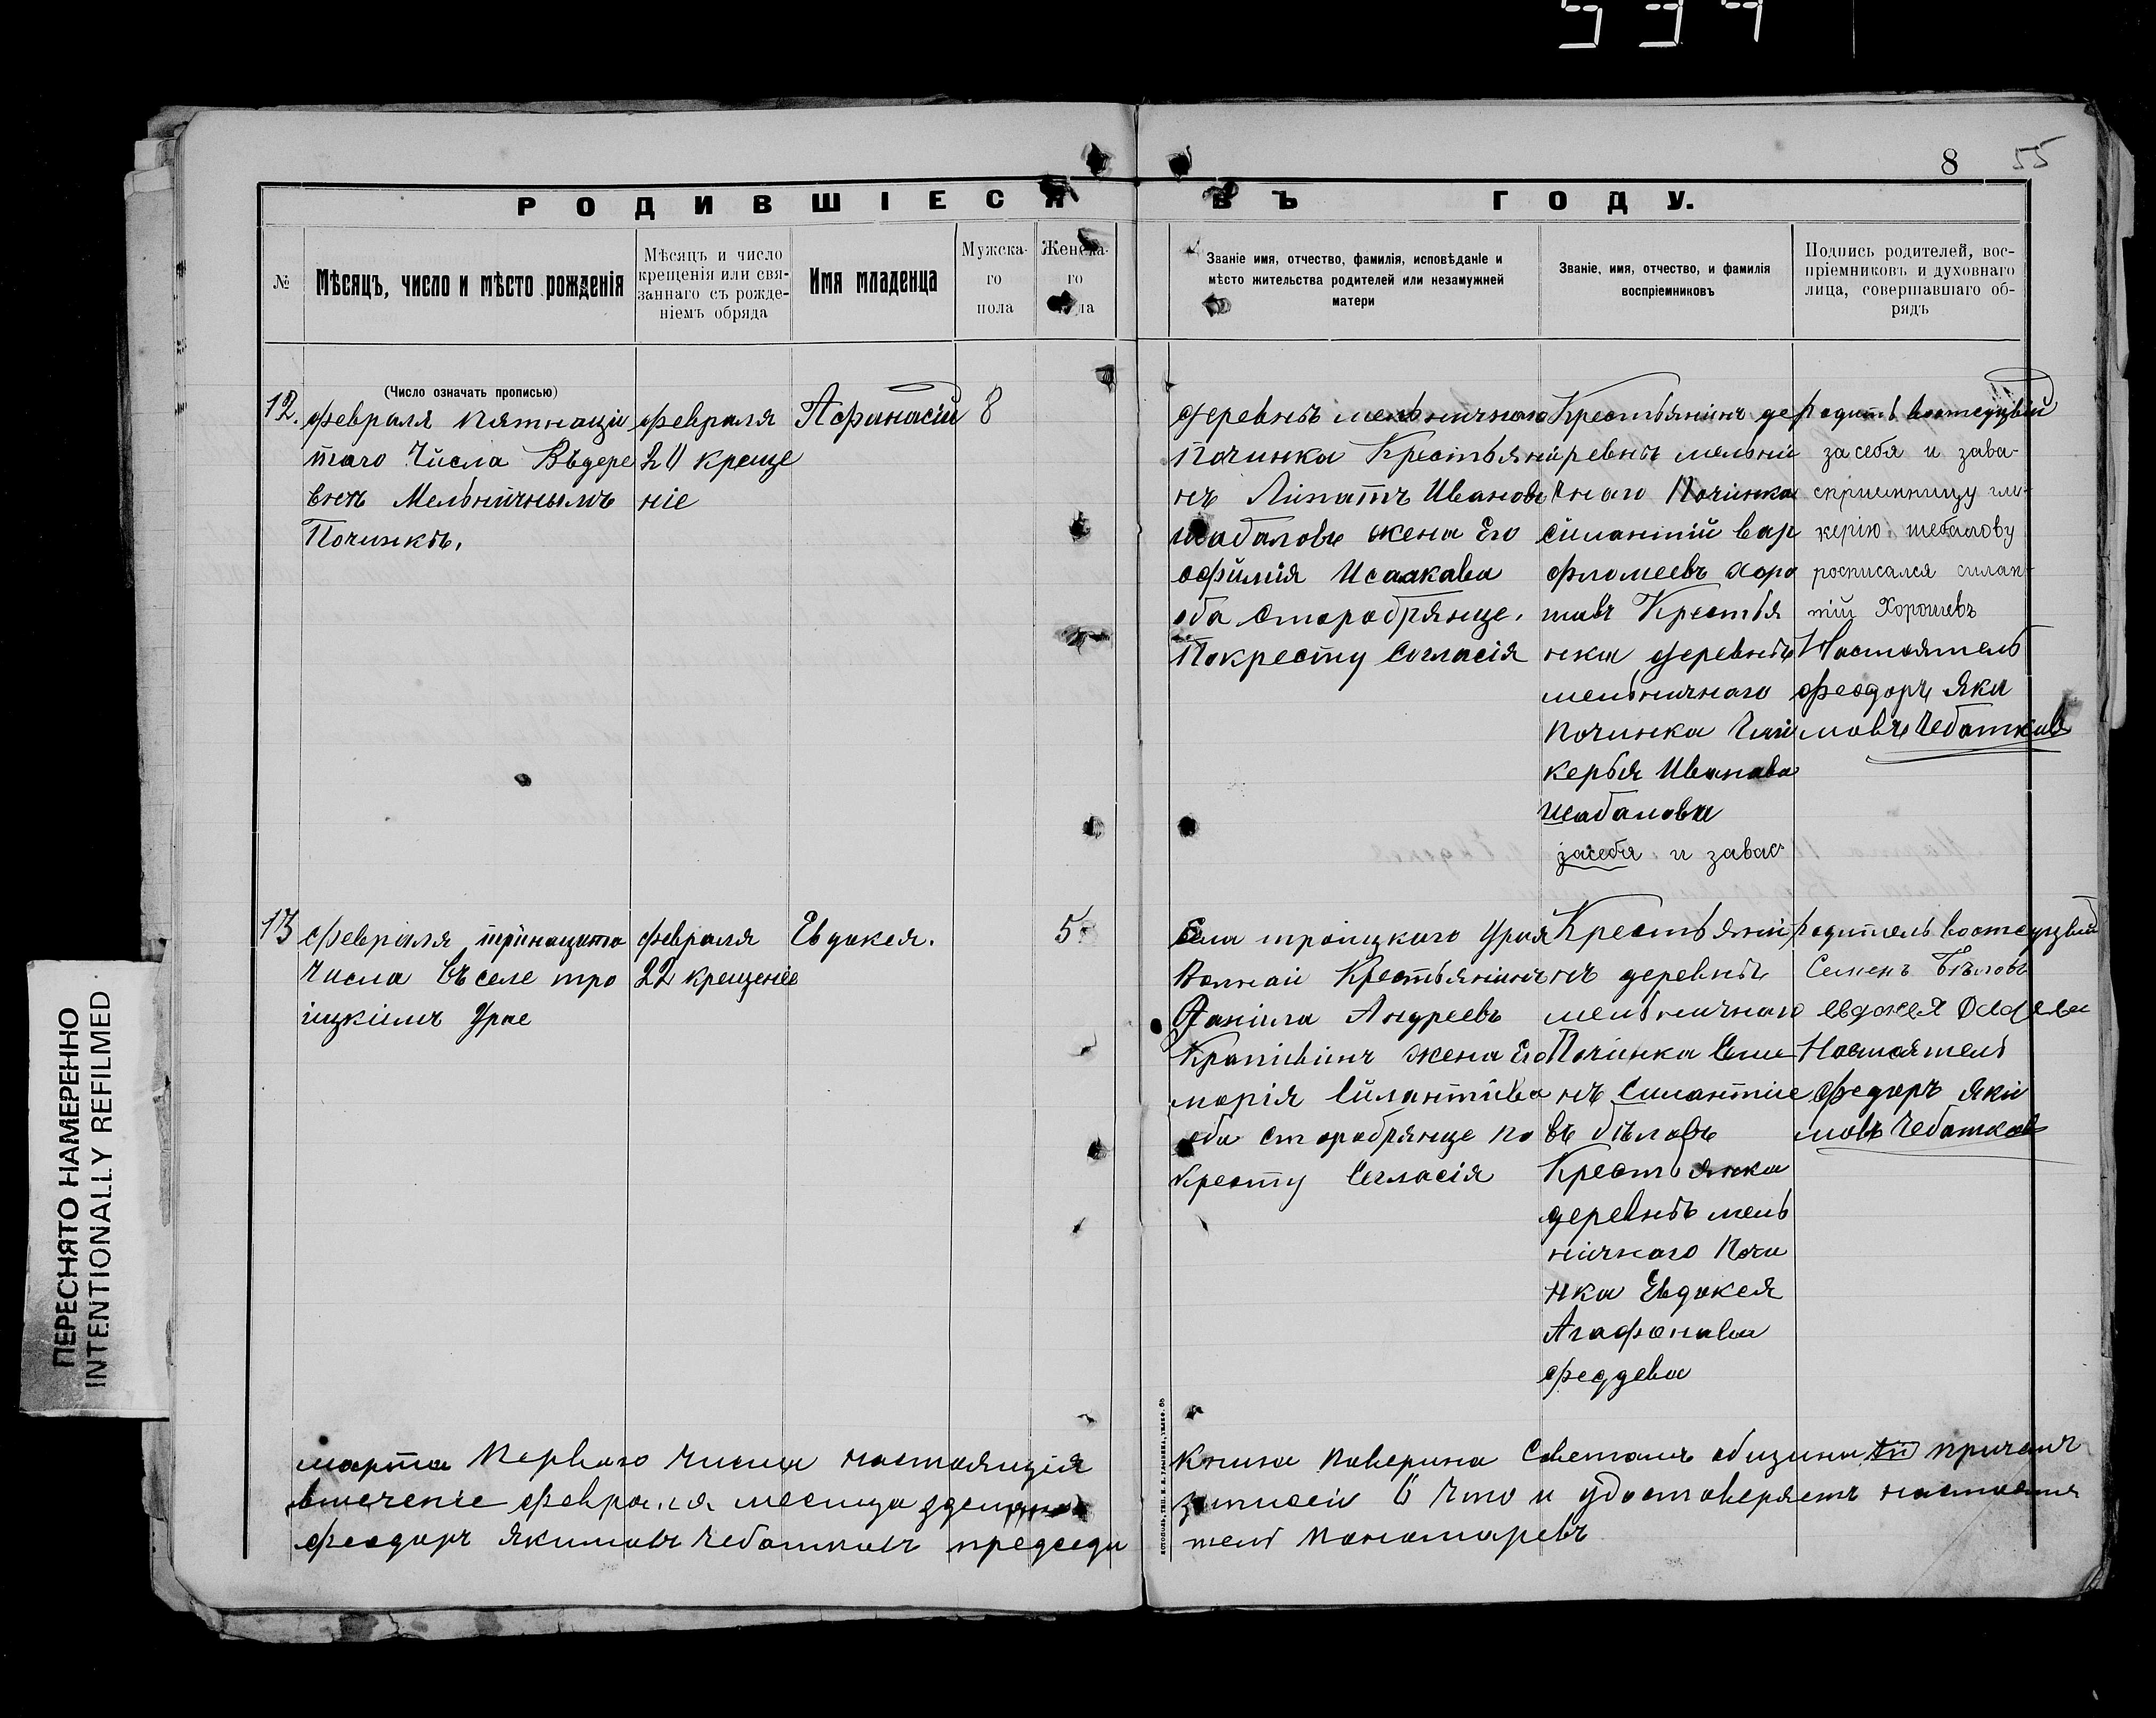 534
8 55
РОДИВШІЕСЯ ВЪ ГОДУ.
№
Мѣсяцъ, число и мѣсто рожденія
Мѣсяцъ и число
крещенія или свя-
заннаго съ рожде-
ніемъ обряда
Имя младенца
Мужска-
го
пола
Женска-
го
пола
Званіе имя, отчество, фамилія, исповѣданіе и
мѣсто жительства родителей или незамужней
матери
Званіе, имя, отчество, и фамилія
воспріемниковъ
Подпись родителей, вос-
пріемниковъ и духовнаго
лица, совершавшаго об-
рядъ
(Число означать прописью)
12.
февраля пятнаци
таго Числа Въдере
внѣ Мельничнымъ
Починкѣ.
февраля
20 креще
ніе
Афанасій
8
деревнѣ мельничнаго
Починка Крестьяни
нъ Липатъ Ивановъ
шабаловъ жена Его
офимія Исаакава
оба старобрянце.
Покресту Согласія
Крестьянинъ де
ревнѣ мельни
чнаго Починка
силантій вар
фломеевъ хоро
шавъ Крестья
нка деревнѣ
мельничнаго
починка Гли
керья Иванава
шабалова
засебя и завас
засебя и зава-
сприемницу гли-
керію шебалову
росписался силан-
тій Хорошевъ
Настоятель
феодоръ Яки
мовъ Чебатковъ
13
февраля тринацата
Числа въ селе тро
ицкимъ Урае
февраля
22 крещеніе
Евдокея.
5
Села троицкаго Урая
Крестьянинъ
Данила Андреевъ
Крапивинъ жена Его
марія Силантива
оба старобрянце по
Кресту Согласія
Крестьяни
нъ деревнѣ
мельничнаго
Починка Семе
нъ Силантие
въ бѣловъ
Крестьянка
деревнѣ мель
ничнаго Почи
нка Евдокея
Агафонава
феддева
Семенъ Бѣловъ
Настоятель
Федоръ Яки
мовъ Чебатковъ
марта Перваго числа настоящія
втечение февраля месяца
феодоръ Якимовъ Чебатковъ председа
книга Поверина Саветамъ общины причемъ
записей 6 Что и удостоверяетъ настоятя
тель Пономаревъ
ПЕРЕСНЯТО НАМЕРЕННО
INTENTIONALLY REFILMED